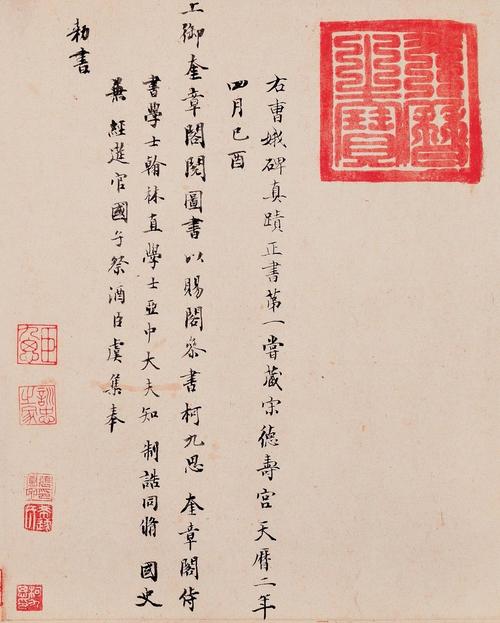 右曹娥碑真蹟正書第一嘗藏宗德壽宮天曆二年
四月己酉
上御奎章閣閱圖書以賜閣參書柯九思奎章閣侍
書學士翰林直學士亞中大夫知制誥同脩國史
兼經筵官國子祭酒臣虞集奉
勅書
天曆之寶